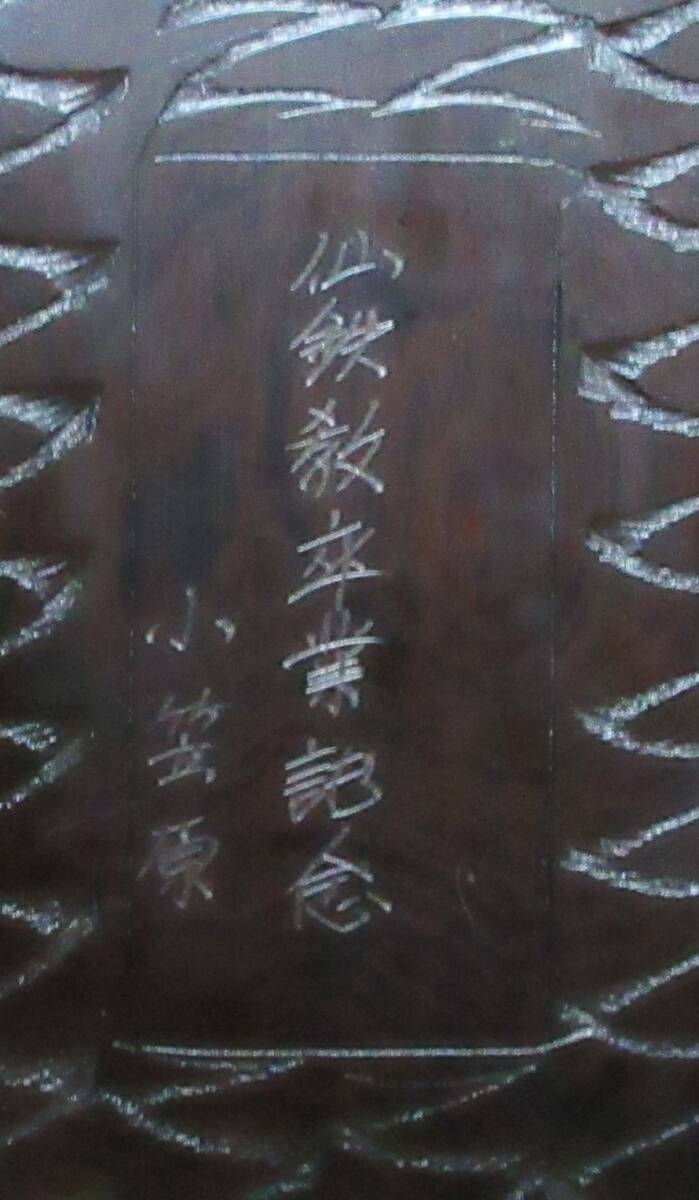 仙鉄教卒業記念
小笠原